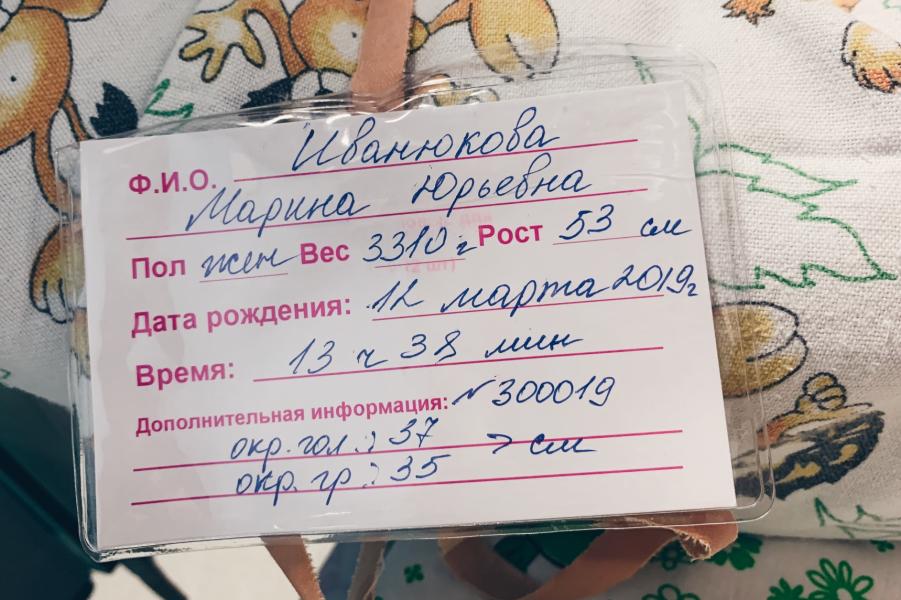 Ф.И.О. Иванюкова
Марина Юрьевна
Пол жен Вес 3310 г Рост 53 см
Дата рождения: 12 марта 2019г
Время: 13 ч 38 мин
Дополнительная информация: №300019
окр. гол.: 37 > см
окр. гр.: 35